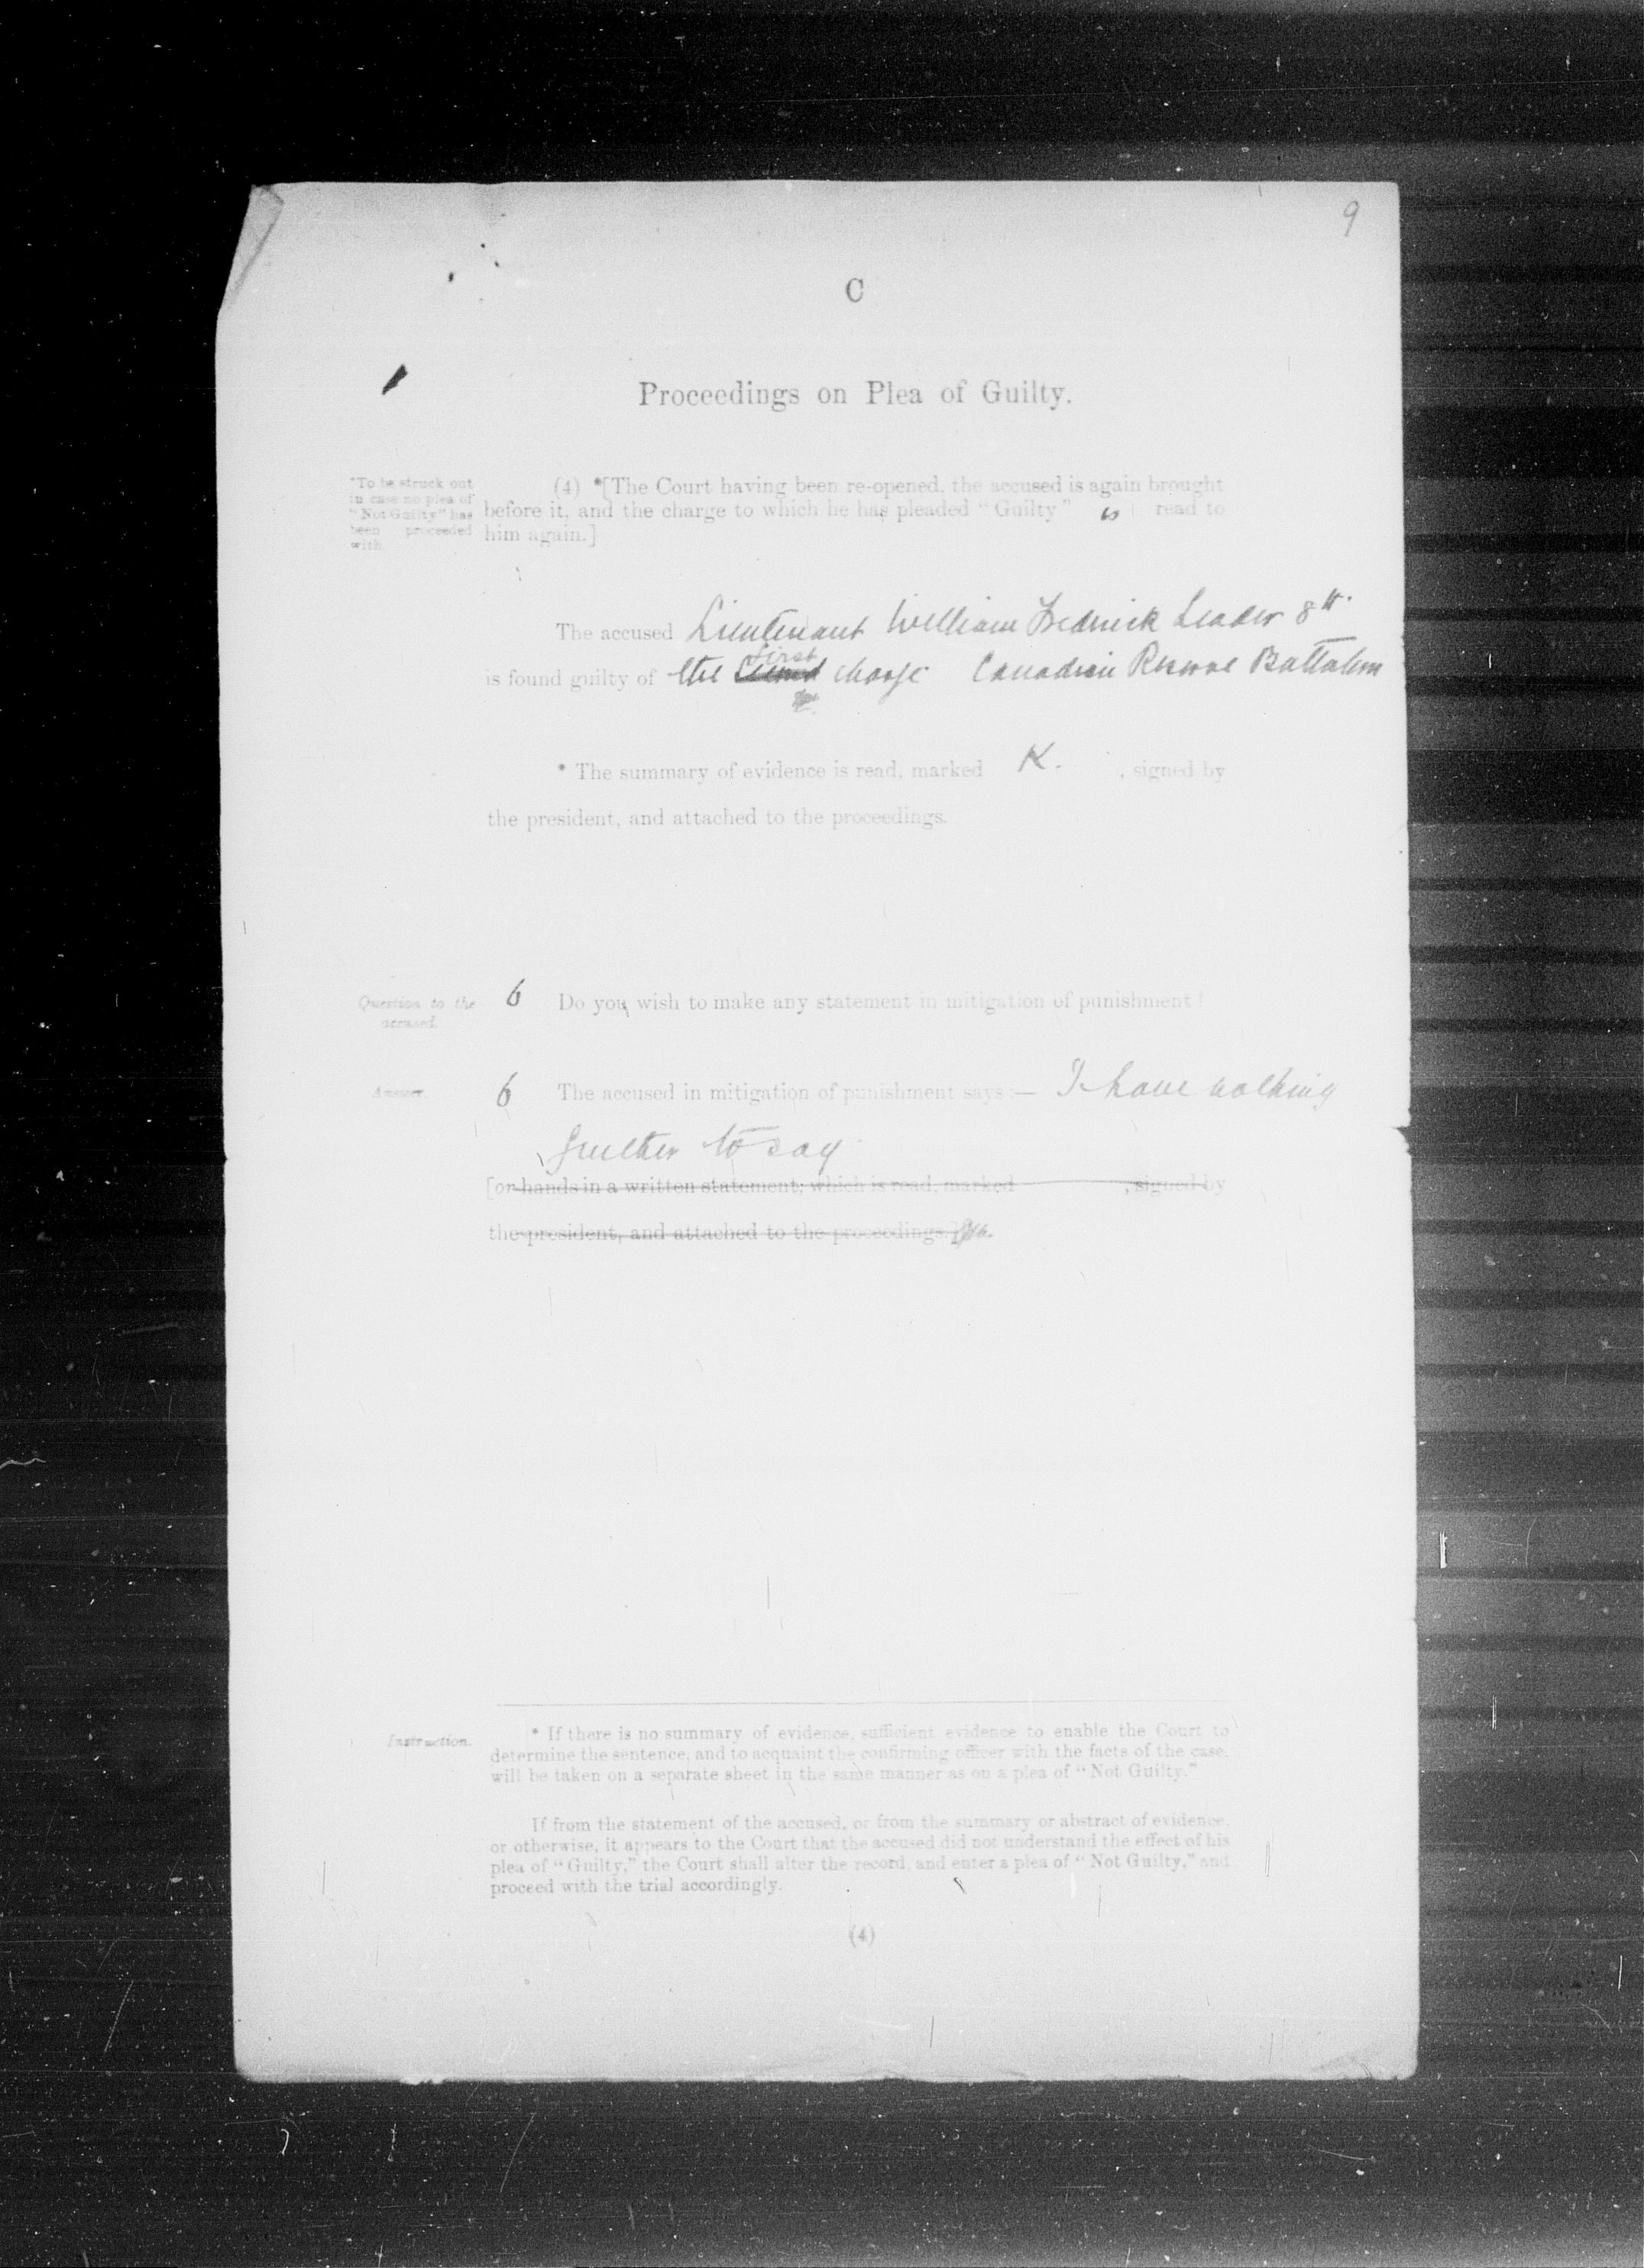 9
C
Proceedings on Plea of Guilty.
*To be struck out
in case no plea of
"Not Guilty" has
been proceeded
with.
(4) *[The Court having been re-opened, the accused is again brought
before it, and the charge to which he has pleaded "Guilty" is read to
him again.]
The accused Lieutenant William Fredrick Leader 8th
first
is found guilty of the charge Canadian Reserve Battalion
* The summary of evidence is read, marked K. , signed by
the president, and attached to the proceedings.
Question to the
accused.
6 Do you wish to make any statement in mitigation of punishment?
Answer.
6 The accused in mitigation of punishment says :— I have nothing
further to say
[or hands in a written statement, which is read, marked , signed by
the president, and attached to the proceedings.]
Instruction.
* If there is no summary of evidence, sufficient evidence to enable the Court to
determine the sentence, and to acquaint the confirming officer with the facts of the case,
will be taken on a separate sheet in the same manner as on a plea of "Not Guilty."
If from the statement of the accused, or from the summary or abstract of evidence,
or otherwise, it appears to the Court that the accused did not understand the effect of his
plea of "Guilty," the Court shall alter the record, and enter a plea of "Not Guilty," and
proceed with the trial accordingly.
(4)